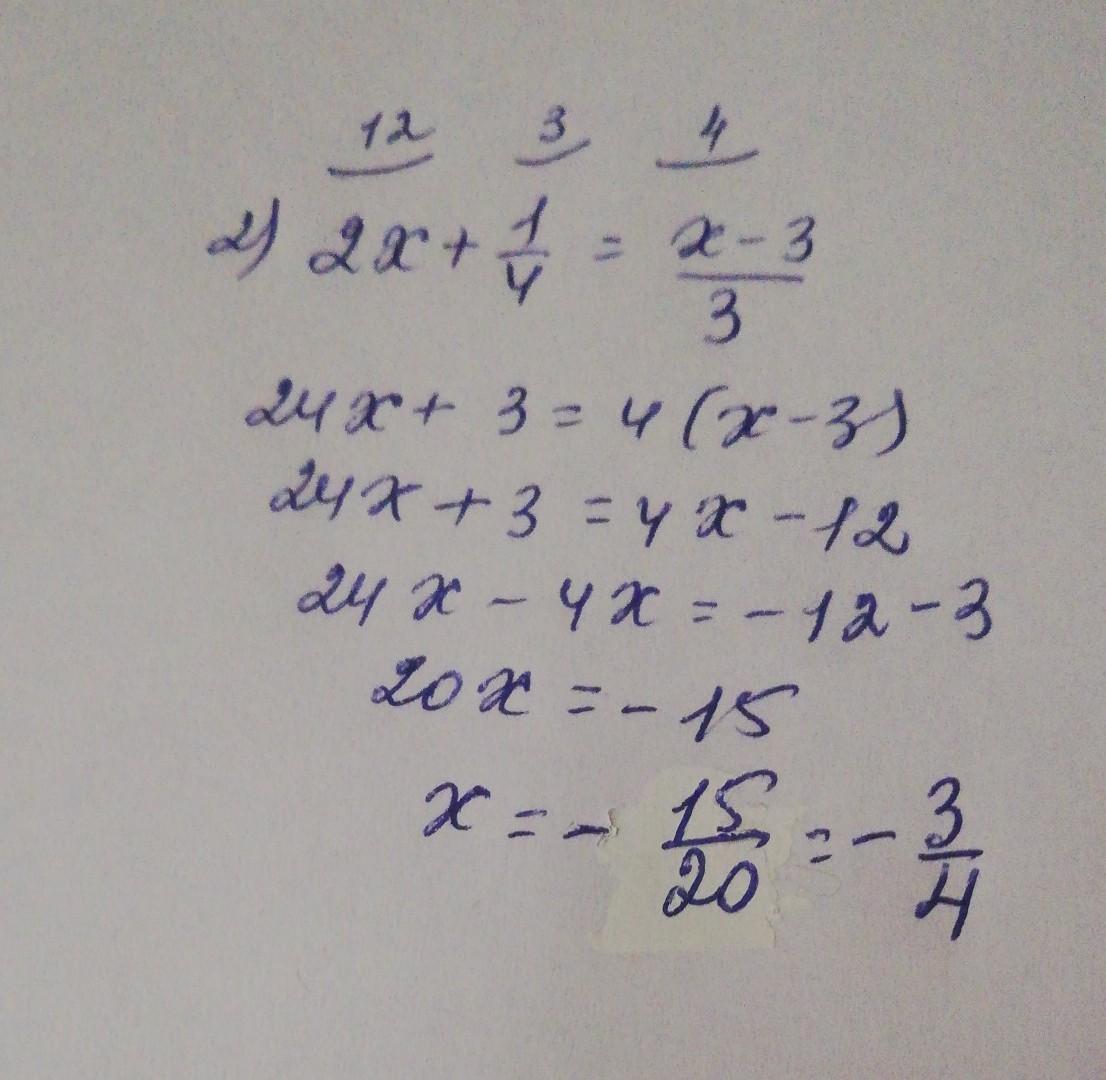 12 3 4
2) 2x + 1/4 = x - 3/3
24x + 3 = 4(x - 3)
24x + 3 = 4x - 12
24x - 4x = -12 - 3
20x = -15
x = - 15/20 = - 3/4